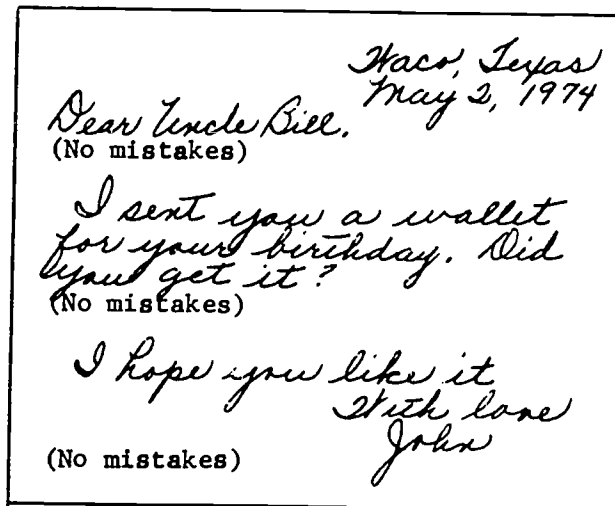 Waco, Texas
May 2, 1974
Dear Uncle Bill.
(No mistakes)
I sent you a wallet
for your birthday. Did
you get it?
(No mistakes)
I hope you like it
With love
John
(No mistakes)